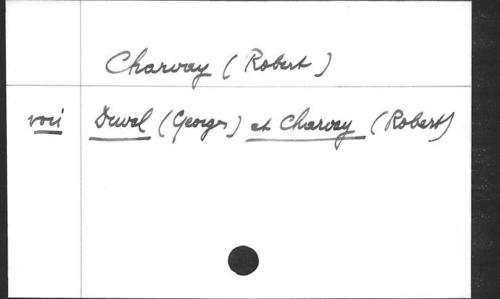 Charvay (Robert)
voir Duval (Georges) et Charvay (Robert)